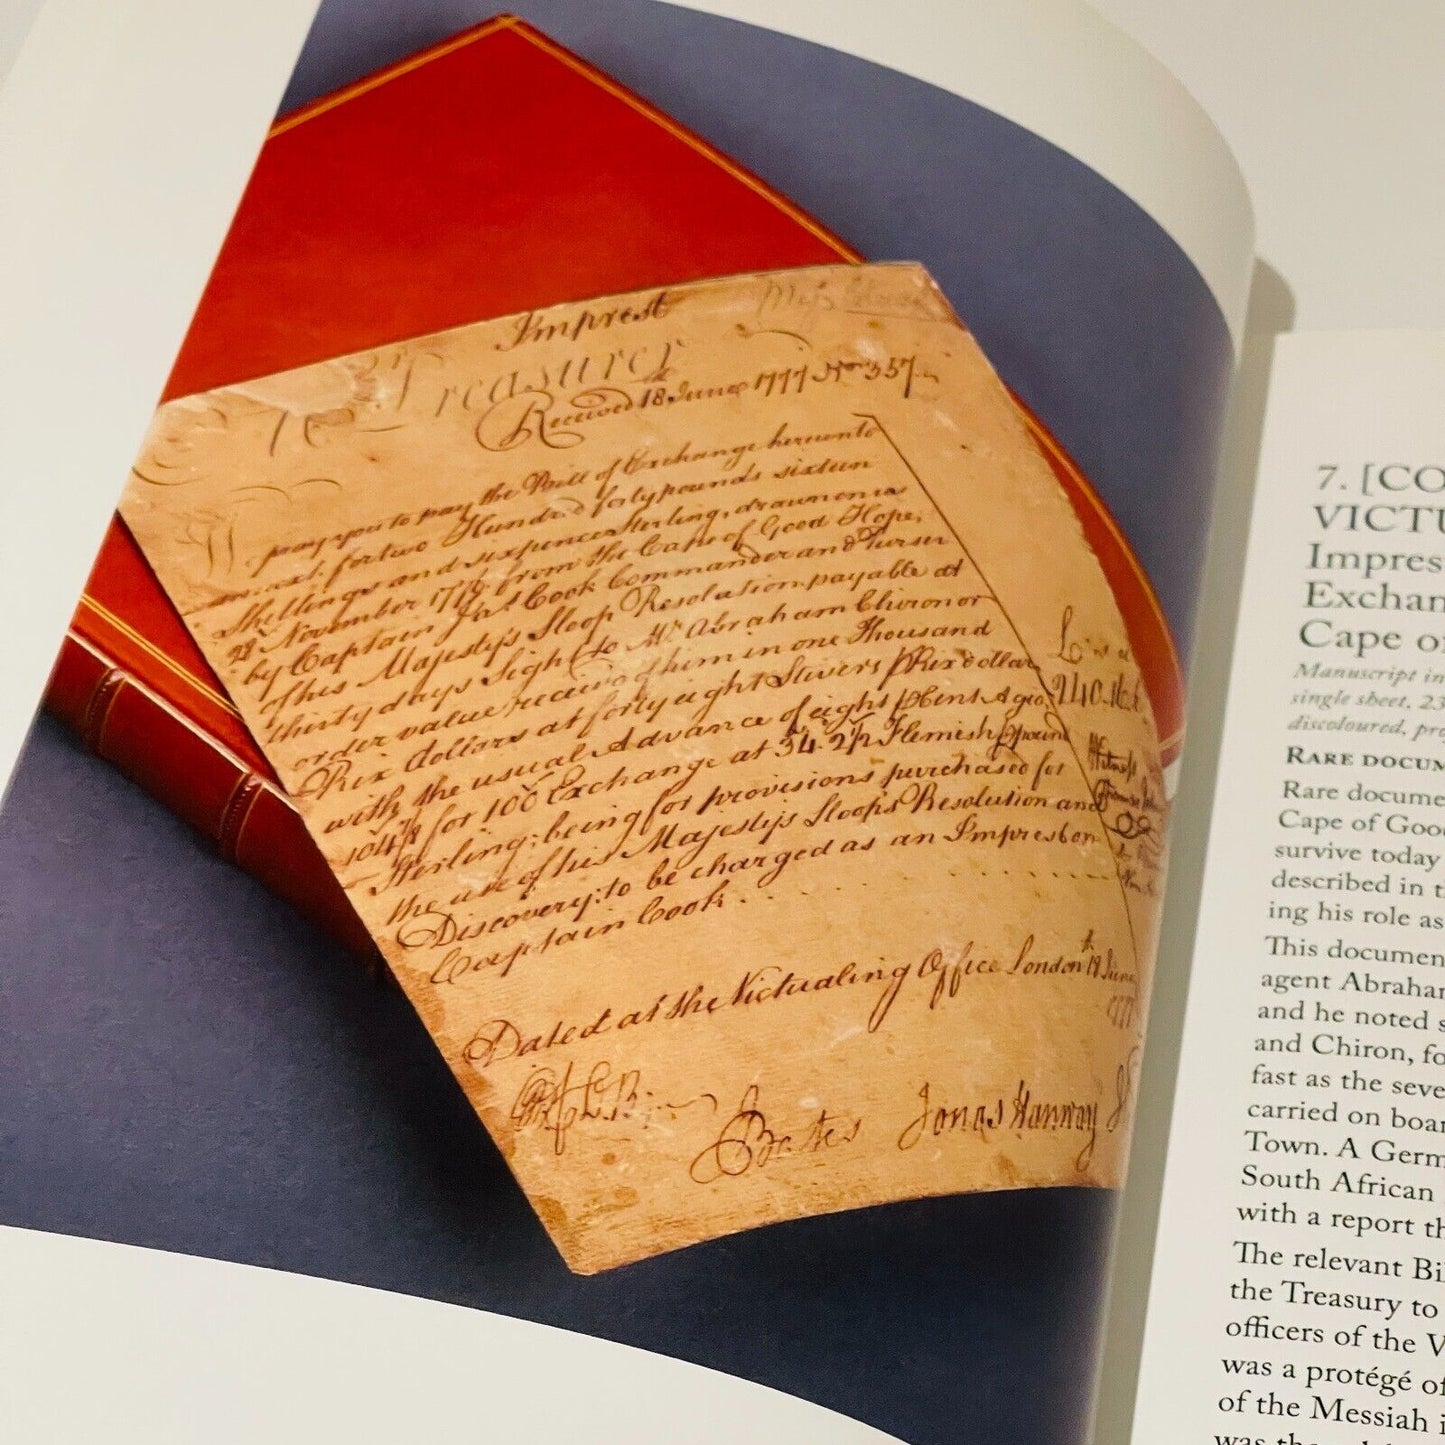 Imprest
Treasurer
Received 18 June 1777 No 357
pray you to pay the Bill of Exchange hereunto
annext; for two Hundred forty pounds sixteen
Shillings and sixpence Sterling, drawn on us
28 November 1776 from the Cape of Good Hope,
by Captain Jas Cook Commander and Purser
of his Majesty's Sloop Resolution payable at
thirty days Sight to Mr Abraham Chiron or
order value received of him in one Thousand
Rix dollars at forty eight Stivers p Rix dollar
with the usual Advance of eight p Cent Agio,
for 100 Exchange at 34.2½ Flemish p pound
Sterling; being for provisions purchased for
the use of his Majesty's Sloops Resolution and
Discovery; to be charged as an Imprest on
Captain Cook
240.16.6
Witness
Dated at the Victualing Office London 18 June
1777
Bates
Jonas Hanway
7. [CO
VICTU
Impres
Exchan
Cape o
Manuscript in
single sheet, 23
discoloured, pro
RARE DOCUM
Rare docume
Cape of Goo
survive today
described in t
ing his role as
This documen
agent Abrahar
and he noted s
and Chiron, fo
fast as the seve
carried on boar
Town. A Germ
South African
with a report th
The relevant Bi
the Treasury to
officers of the V
was a protégé of
of the Messiah i